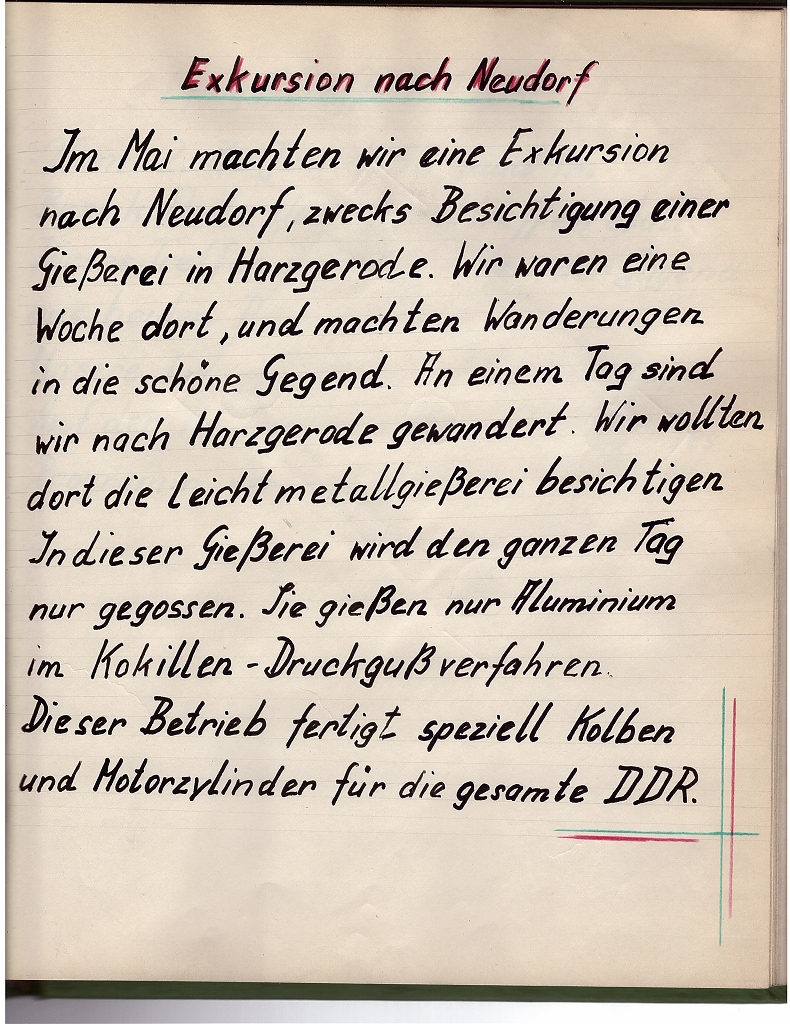 Exkursion nach Neudorf
Im Mai machten wir eine Exkursion
nach Neudorf, zwecks Besichtigung einer
Gießerei in Harzgerode. Wir waren eine
Woche dort, und machten Wanderungen
in die schöne Gegend. An einem Tag sind
wir nach Harzgerode gewandert. Wir wollten
dort die Leichtmetallgießerei besichtigen
In dieser Gießerei wird den ganzen Tag
nur gegossen. Sie gießen nur Aluminium
im Kokillen-Druckgußverfahren.
Dieser Betrieb fertigt speziell Kolben
und Motorzylinder für die gesamte DDR.